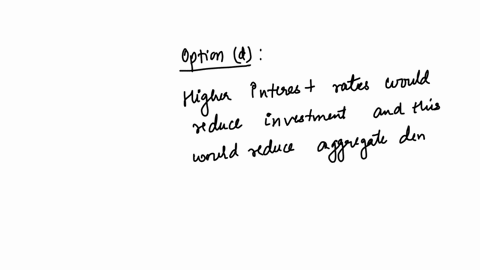 Option (d) :
Higher interest rates would
reduce investment and this
would reduce aggregate dem